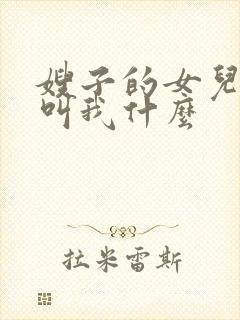 嫂子的女兒
叫我什麼
拉米雷斯